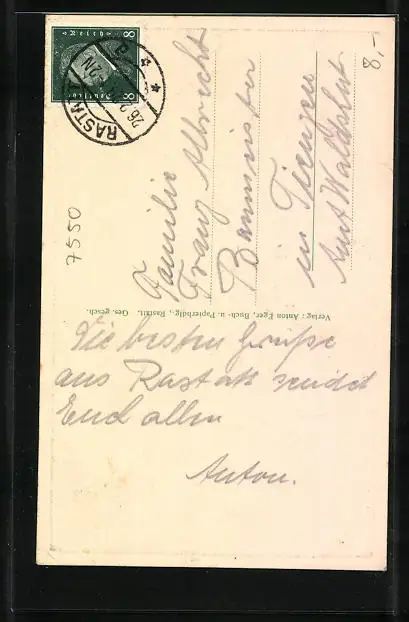 8,-
7550
RASTA
26.2
8
8
Familie
Franz Albrecht
Baumeister
in Tiengen
Amt Waldshut
Verlag: Anton Eger, Buch- u. Papierhdlg., Rastatt. Ges. gesch.
Die besten Grüße
aus Rastatt sendet
Euch allen
Anton.